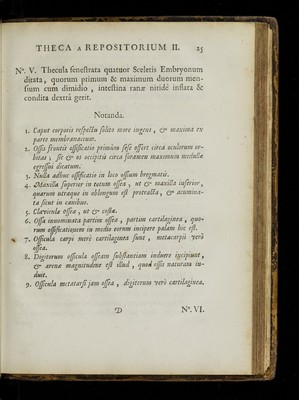 THECA A REPOSITORIUM II. 25
No. V. Thecula fenestrata quatuor Sceletis Embryonum
ditata, quorum primum & maximum duorum men-
sium cum dimidio, intestina ranæ nitidè inflata &
condita dextrâ gerit.
Notanda.
1. Caput corporis respectu solito more ingens, & maxima ex
parte membranaceum.
2. Ossa frontis ossificatio primùm sese offert circa oculorum or-
bitas; sic & os occipitis circa foramen maximum medullæ
egressui dicatum.
3. Nulla adhuc ossificatio in loco ossium bregmatis.
4. Maxilla superior in totum ossea, ut & maxilla inferior,
quarum utraque in oblongum est protracta, & acumina-
ta sicut in canibus.
5. Clavicula ossea, ut & costæ.
6. Ossa innominata partim ossea, partim cartilaginea, quo-
rum ossificationem in medio eorum incipere palam hic est.
7. Ossicula carpi merè cartilaginea sunt, metacarpii verò
ossea.
8. Digitorum ossicula osseam substantiam induere incipiunt,
& arenæ magnitudine est illud, quod ossis naturam in-
duit.
9. Ossicula metatarsi jam ossea, digitorum verò cartilaginea.
D No. VI.